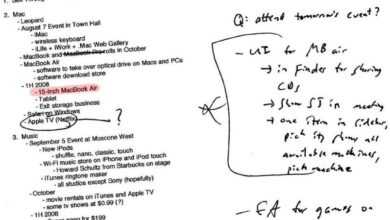 2. Mac
- Leopard
- August 7 Event in Town Hall
- iMac
- wireless keyboard
- iLife + iWork + .Mac Web Gallery
- MacBook and MacBook Pro rolls in October
- MacBook Air
- software to take over optical drive on Macs and PCs
- software download store
- 1H 2008
- 15-inch MacBook Air
- Tablet
- Exit storage business
- Safari on Windows
- Apple TV (Netflix) ?
3. Music
- September 5 Event at Moscone West
- New iPods
- shuffle, nano, classic, touch
- Wi-Fi music store on iPhone and iPod touch
- Howard Schultz from Starbucks on stage
- iTunes ringtone maker
- all studios except Sony (hopefully)
- October
- movie rentals on iTunes and Apple TV
- some tv shows at $0.99 (?)
- 1H 2008
for $199
Q: attend tomorrow's event?
- UI for MB air
→ in Finder for sharing CDs
→ Show SJ in meeting
→ one item in sidebar,
pick its shows all
available machines,
pick machine
- EA for games on